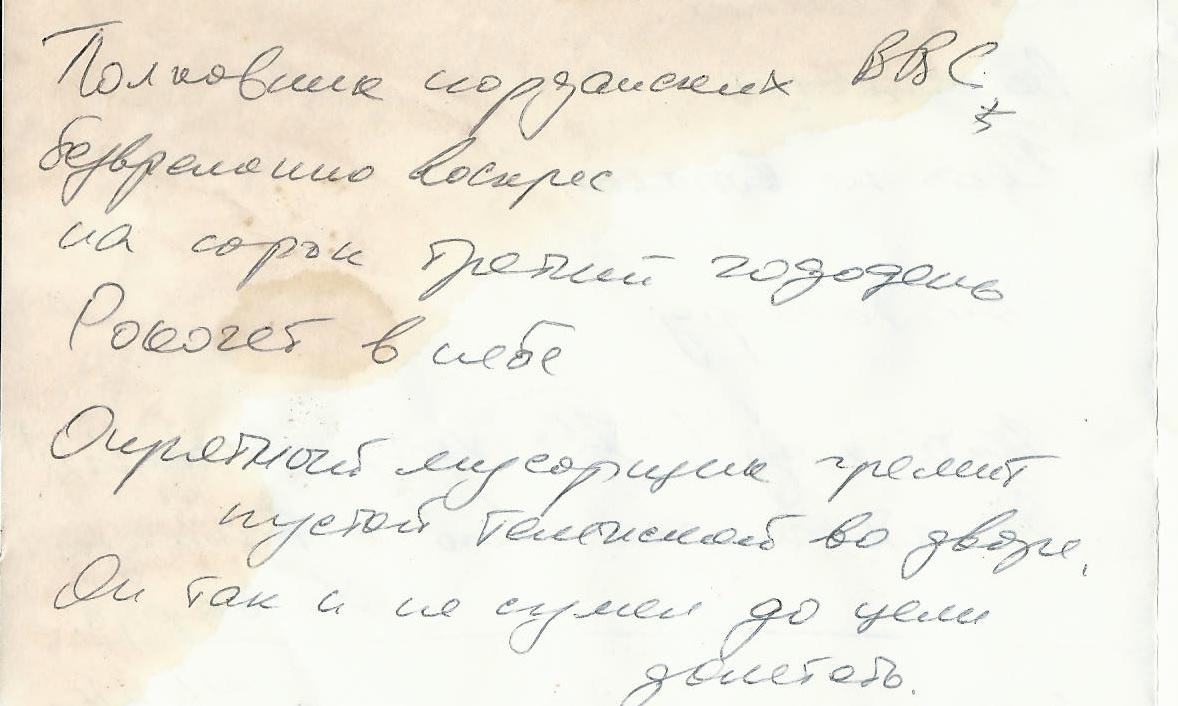 Полковник иорданских ВВС
безвременно воскрес
на сорок третий гододень
Рокочет в небе
Опрятный мусорщик гремит
пустой тележкой во дворе.
Он так и не сумел до цели
долетать.